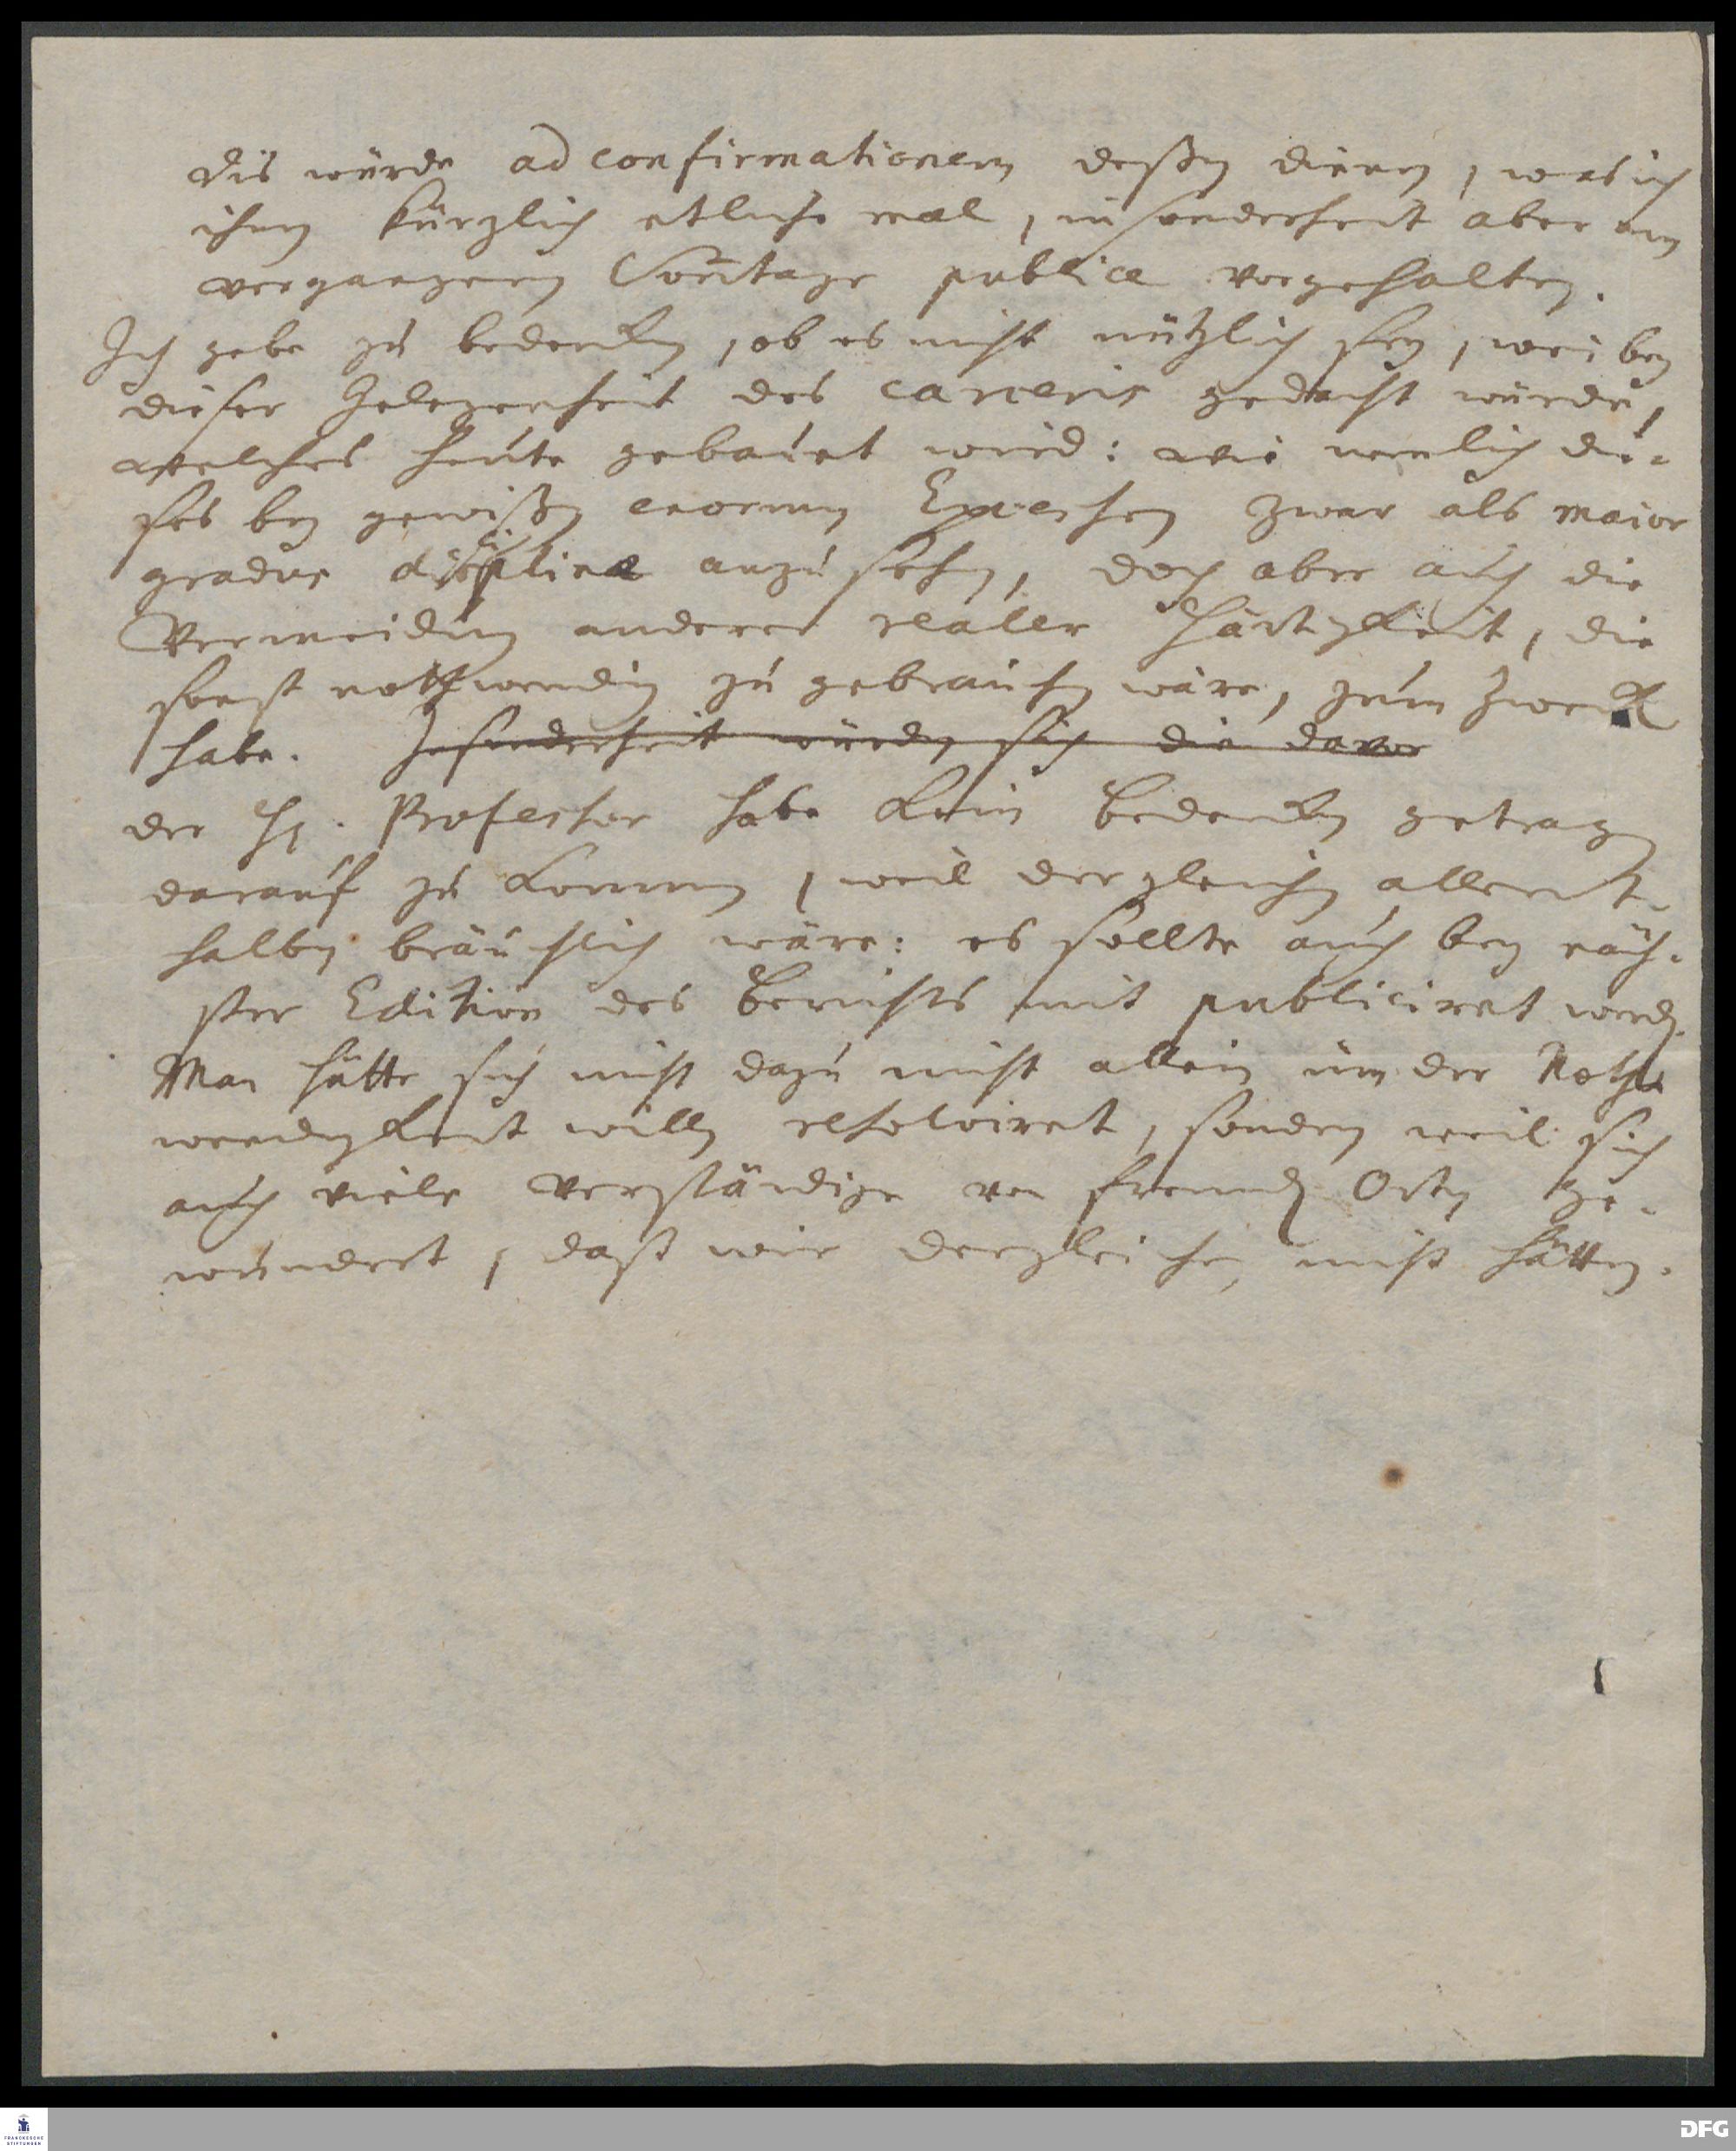 Dis würde ad confirmationem deßen dienen, was ich
ihnen kürzlich etliche mal, insonderheit aber am
vergangenen Sontage publice vorgehalten.
Ich gebe zu bedencken, ob es nicht nützlich sey, wen bey
dieser Gelegenheit des carceris gedacht würde,
welches heute gebauet wird: wie nemlich die-
ses bey gewißen enormen Excessen zwar als maior
gradus disciplinae anzusehen, doch aber auch die
Vermeidung anderer realer Härtigkeit, die
sonst nothwendig zu gebrauchen wäre, zum Zweck
habe. Insonderheit würden sich die davor
der H. Professor habe kein Bedencken getragen
darauf zu kommen, weil dergleichen allent-
halben bräuchlich wäre: es sollte auch bey näch-
ster Edition des Berichts mit publiciret werden.
Man hätte sich nicht dazu nicht allein um der Noth
wendigkeit willen resolviret, sondern weil sich
auch viele Verständige von fremden Orten ge-
wundert, daß wir dergleichen nicht hätten.
FRANCKESCHE
STIFTUNGEN
DFG